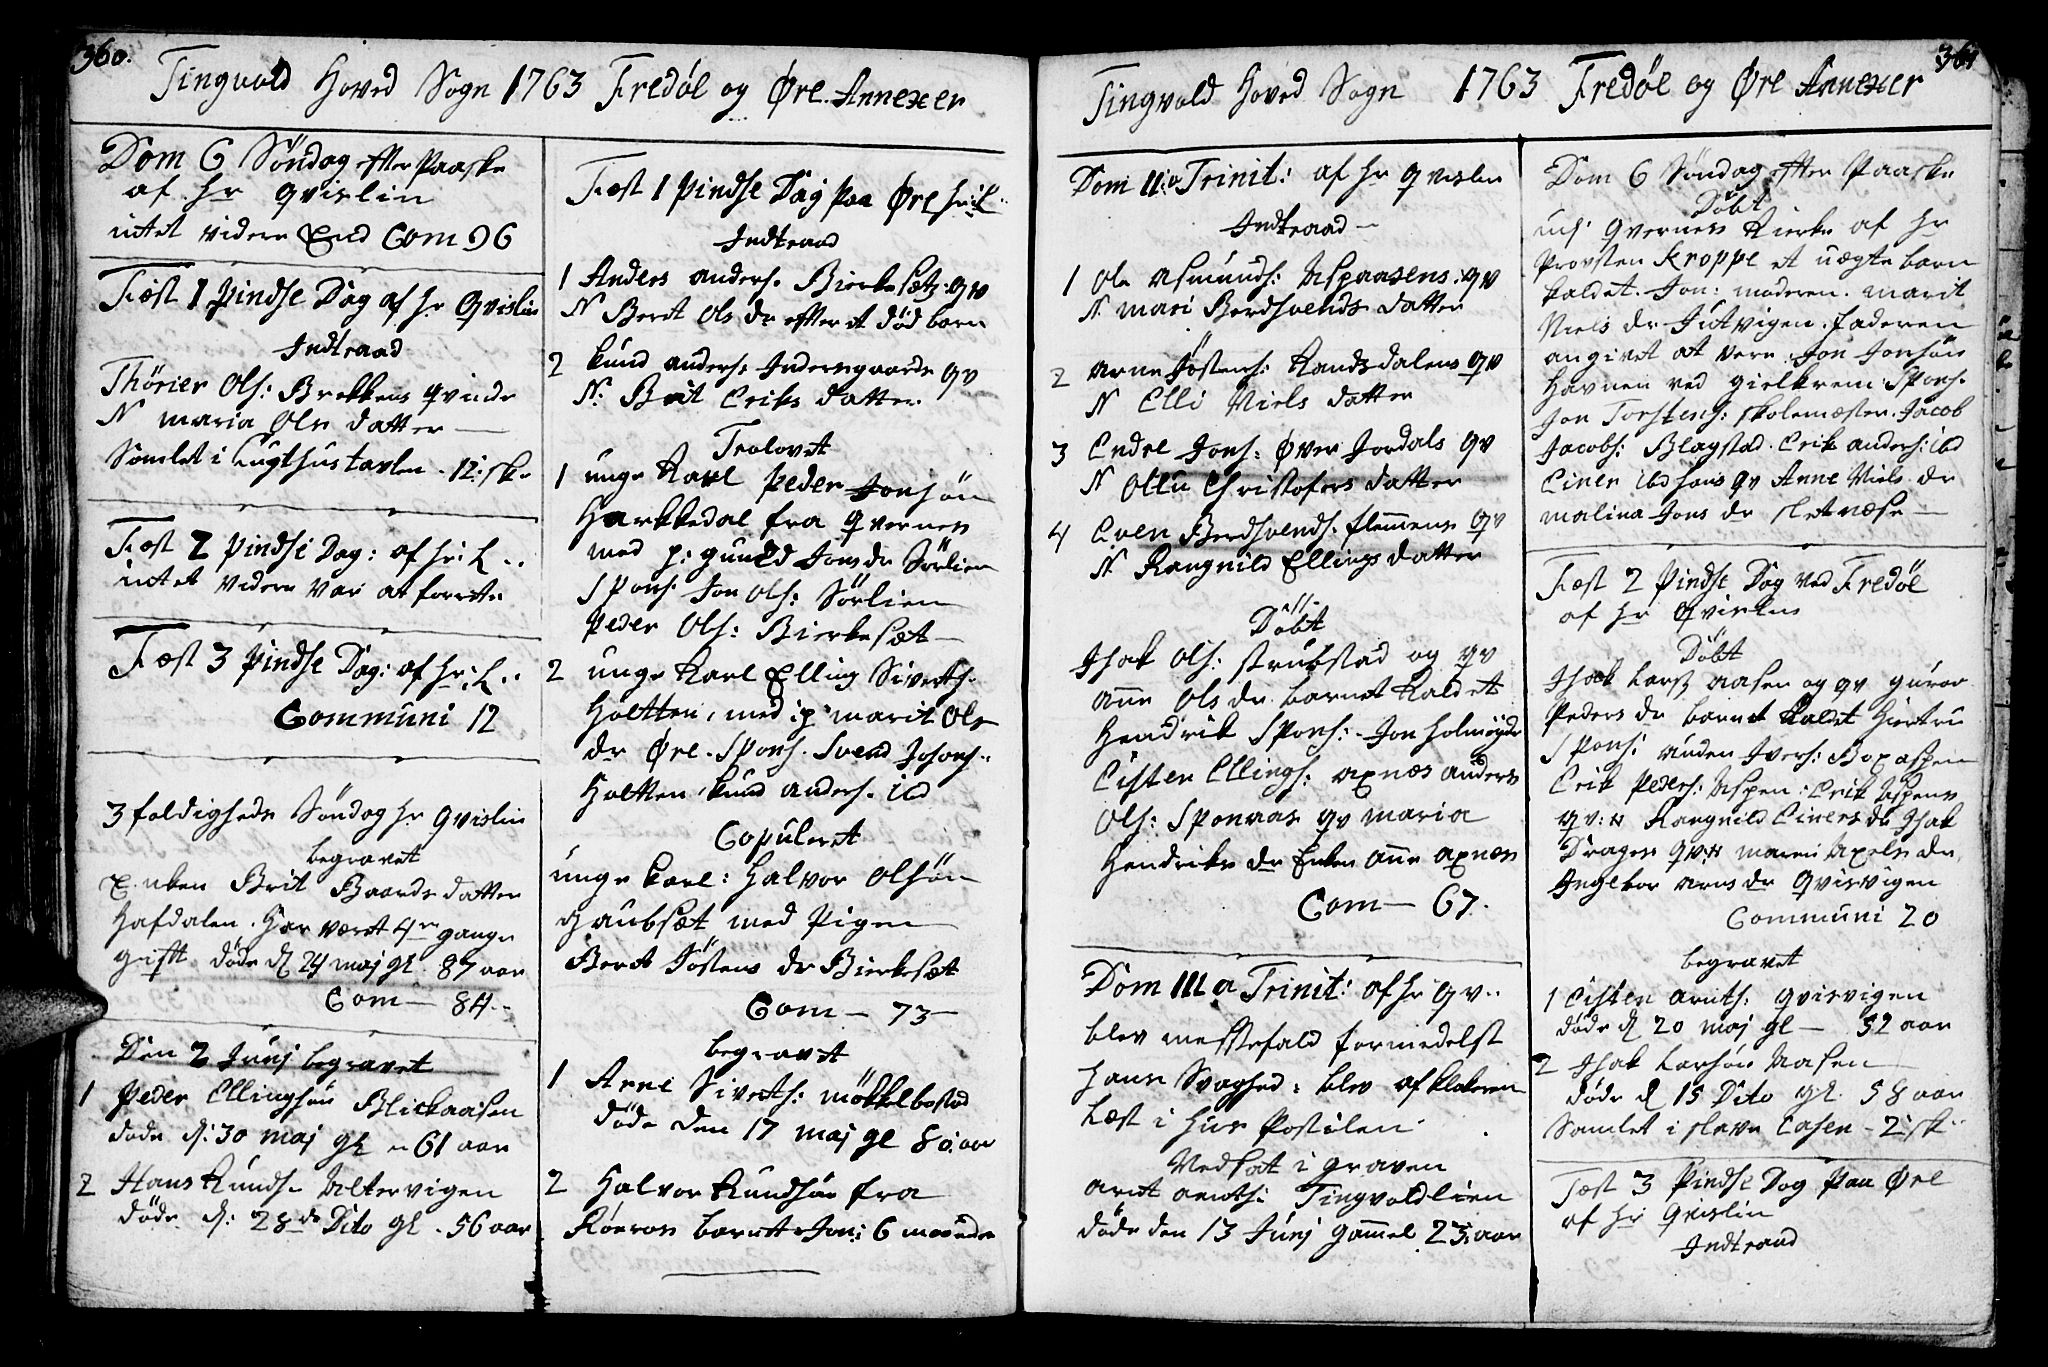 360.
Tingvold Hoved Sogn 1763 Fredøl og Øre Annexer
Dom 6 Søndag efter Paaske
af hr Qvislin
intet videre End Com 96
Fæst 1 Pindse Dag af hr Qvislin
Indtraad
Thörier Ols: Brekkens Qvinde
N maria Ols datter
Samlet i tugthus tavlen - 12: sk
Fæst 2 Pindse Dag: af hr: L..
intet videre var at forrette
Fæst 3 Pindse Dag: af hr: L..
Communi 12
3 foldigheds Søndag hr Qvislin
begravet
Enken Brit Baards datter
Hafdalen. Har været 4re gange
gift døde d 24 maj gl 87 aar
Com - 84.-
Den 2 Junj begravet
1 Peder Ellingsøn Blickaasen
døde d: 30 maj gl - 61 aar
2 Hans Knuds. Altervigen
døde d: 28de Dito gl - 56 aar
Fæst 1 Pindse Dag paa Øre hr: L..
Indtraad
1 Anders anders. Bierkesætz: qv
N Berit Ols dr efter et død barn
2 knud anders: Indersgaards qv
N: Brit Eriks datter
Trolovet
1 unge Karl Peder Jonsön
Harkkedal fra Qvernes
med p: gunild Jons dr Sörlien
Spons: Jon Ols: Sörlien
Peder Ols: Bierkesæt
2 unge Karl Elling Siverts.
Holtten, med :p marit Ols
dr Øre. Spons. Svend Johans..
Holtten, knud anders. ibd
Copuleret
unge karl: Halvor Olsön
gaubsæt med Pigen
Berit Jöstens dr Bierkesæt
Com - 73 -
begravet
1 Arne Siverts: mökkelbostad
döde den 17 maj gl 80: aar
2 Halvor Knudsön fra
Röeros barnet Jon: 6 maaneder
361
Tingvold Hoved Sogn 1763 Fredøl og Øre Annexer
Dom II: a Trinit: af hr Qvislin
Indtraad -
1 Ole Asmunds: Aspaasens: qv
N. mari Berdsvends datter
2 Arne Jöstens: Randsdalens qv
N Elli Niels datter
3 Endre Jons: Øver Jordals qv
N Ollu Christofers datter
4 Even Berdsvends. flemmens qv
N. Rangnild Ellings datter
Döbt
Isak Ols: strubstad og qv
ane Ols dr barnet kaldet
Hendrik Spons: - Jon holmøyde
Eisten Ellings: axnæs anders
Ols: Sponaas qv maria
Hendriks dr Enken ane axnæs
Com - 67.
Dom III a Trinit: af hr qv..
blev messefald formedelst
hans Svaghed: blev af klokeren
Læst i Hus Postilen
Nedsat i graven
arnt arnts: Tingvoldlien
döde den 13 Junj gammel 23: aar
Dom 6 Søndag efter Paaske
Döbt
udi Qvernes Kierke af hr
Provsten Kroppe et uægte barn
kaldet. Jon: moderen. marit
Niels dr Jutvigen. faderen
angivet at vere. Jon Jonsön
Havnen ved gielkrem: Spons.
Jon Torstens: skolemæster. Jacob
Jacobs: Blagstad. Erik anders: ibd
Einer ibd hans qv Anne Niels dr
malina Jons dr sletnæse -
Fæst 2 Pindse Dag ved Fredøl
af hr Qvislin
Döbt
Isak Lars: aasen og qv guroe
Peders dr barnet kaldet Hiertru
Spons: auden Ivers: Boxaspen
Erik Peders: Aspen: Erik Aspens
qv: N Rangnild Einers dr Isak
Drages qv: N maren Axels dr
Ingebor arns dr Qvisvigen
Communi 20
begravet
1 Eisten arnts: Qvisvigen
döde d 20 maj gl - 52 aar
2 Isak Larsön Aasen
döde d 15 Dito gl. 58 aar
Samlet i slave Casen - 2: sk..
Fæst 3 Pindse Dag paa Øre
af hr Qvislin
Indtraad